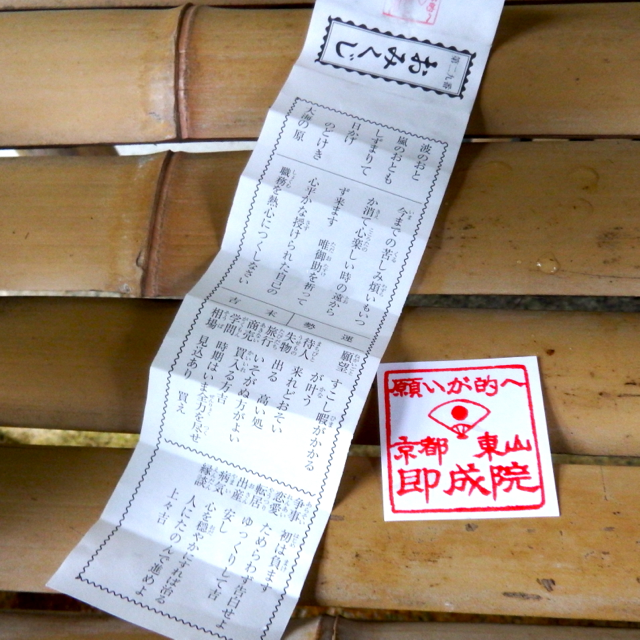 おみくじ
第二九番
波のおと
嵐のおとも
しずまりて
日かげ
のどけき
大海の原
今までの苦しみ煩いもいつ
か消て心楽しい時の
ず来ます 唯御助を祈って
心静かな授けられた自己の
職務を熱心につくしなさい
運勢
末吉
願望 すこし暇がかかる
が叶う
待人 来れどおそい
失物 出る 高い処
旅行 いそがぬ方がよい
商売 買入るるが吉
学問 時期はいま全力だせ
相場 見込あり 買え
争事 初は負ます
恋愛 ためらわず告白せよ
転居 ゆっくりして吉
出産 安し
病気 心を穏やかにすれば治る
縁談 人にたのんで進めよ
上々吉
願いが的へ
京都 東山
即成院